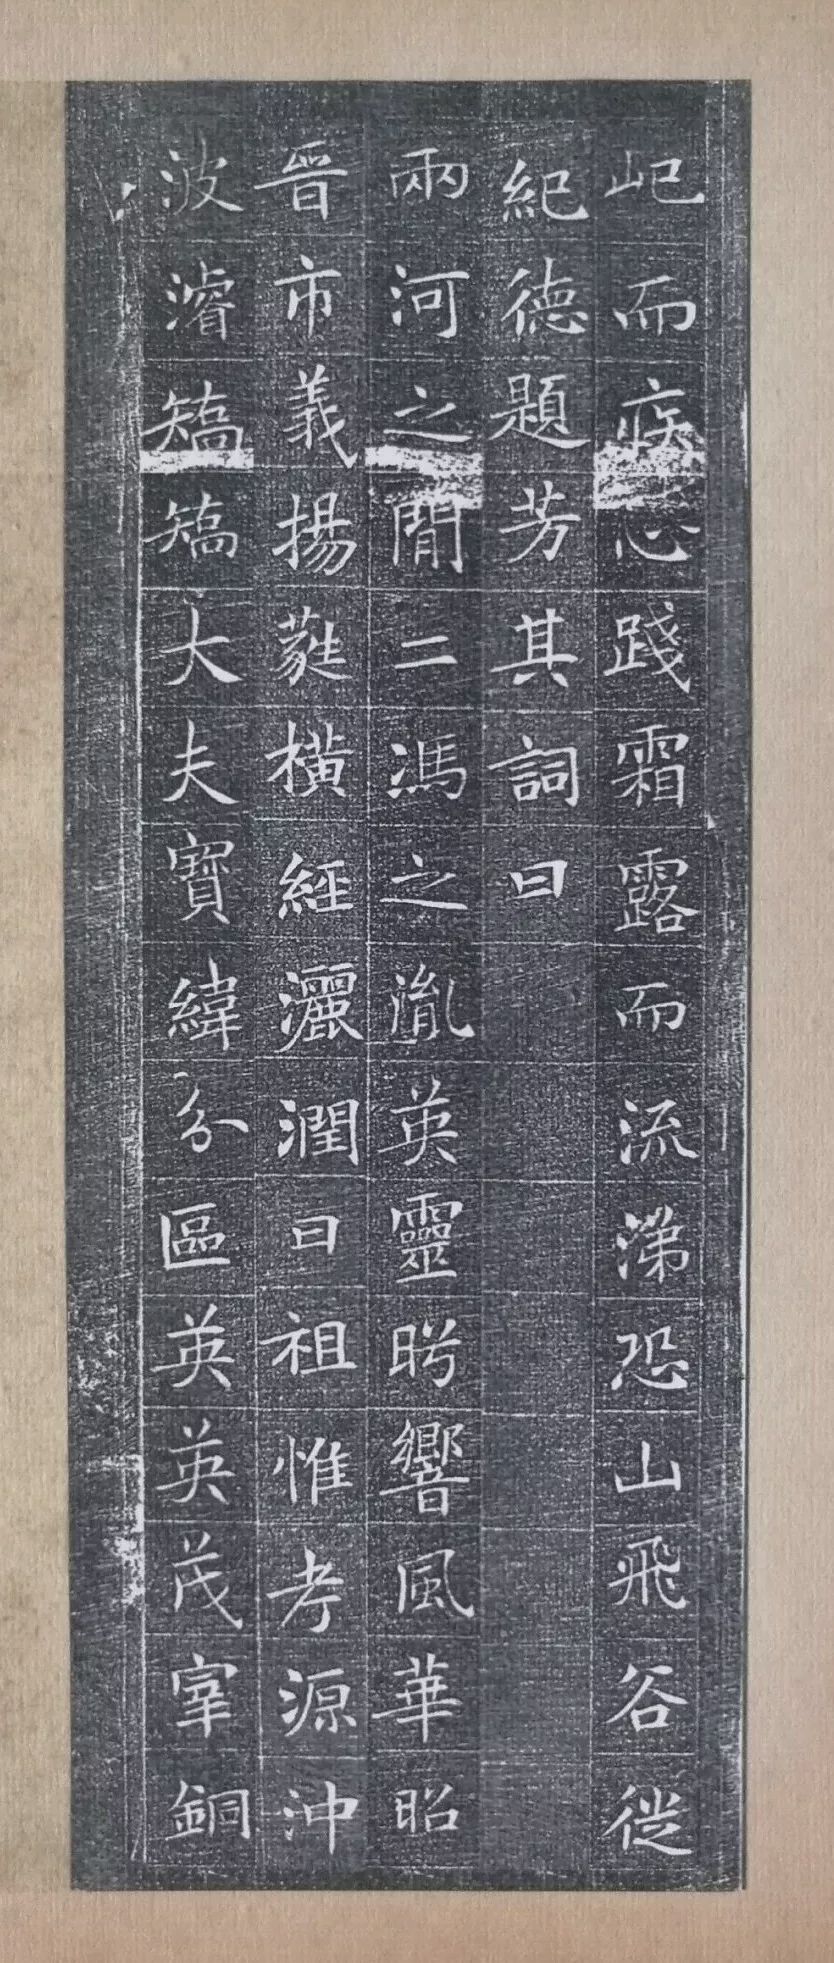 屺而疚心踐霜露而流涕恐山飛谷徙
紀德題芳其詞曰
兩河之間二馮之胤英靈肹響風華昭
晉市義揚蕤橫經灑潤曰祖惟考源沖
波濬矯矯大夫寶緯分區英英茂宰銅